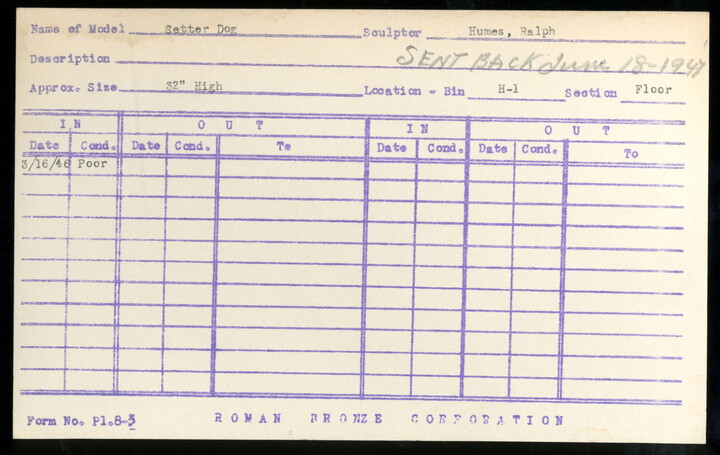 Name of Model Setter Dog Sculptor Humes, Ralph
Description SENT BACK June 18-1947
Approx. Size 32" High Location - Bin H-1 Section Floor
IN OUT IN OUT
Date Cond. Date Cond. To Date Cond. Date Cond. To
3/16/46 Poor
Form No. Pl.8-3 ROMAN BRONZE CORPORATION